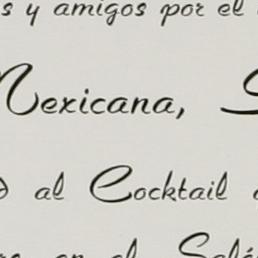 s y amigos por el
Mexicana, S
al Cocktail
en el Saló